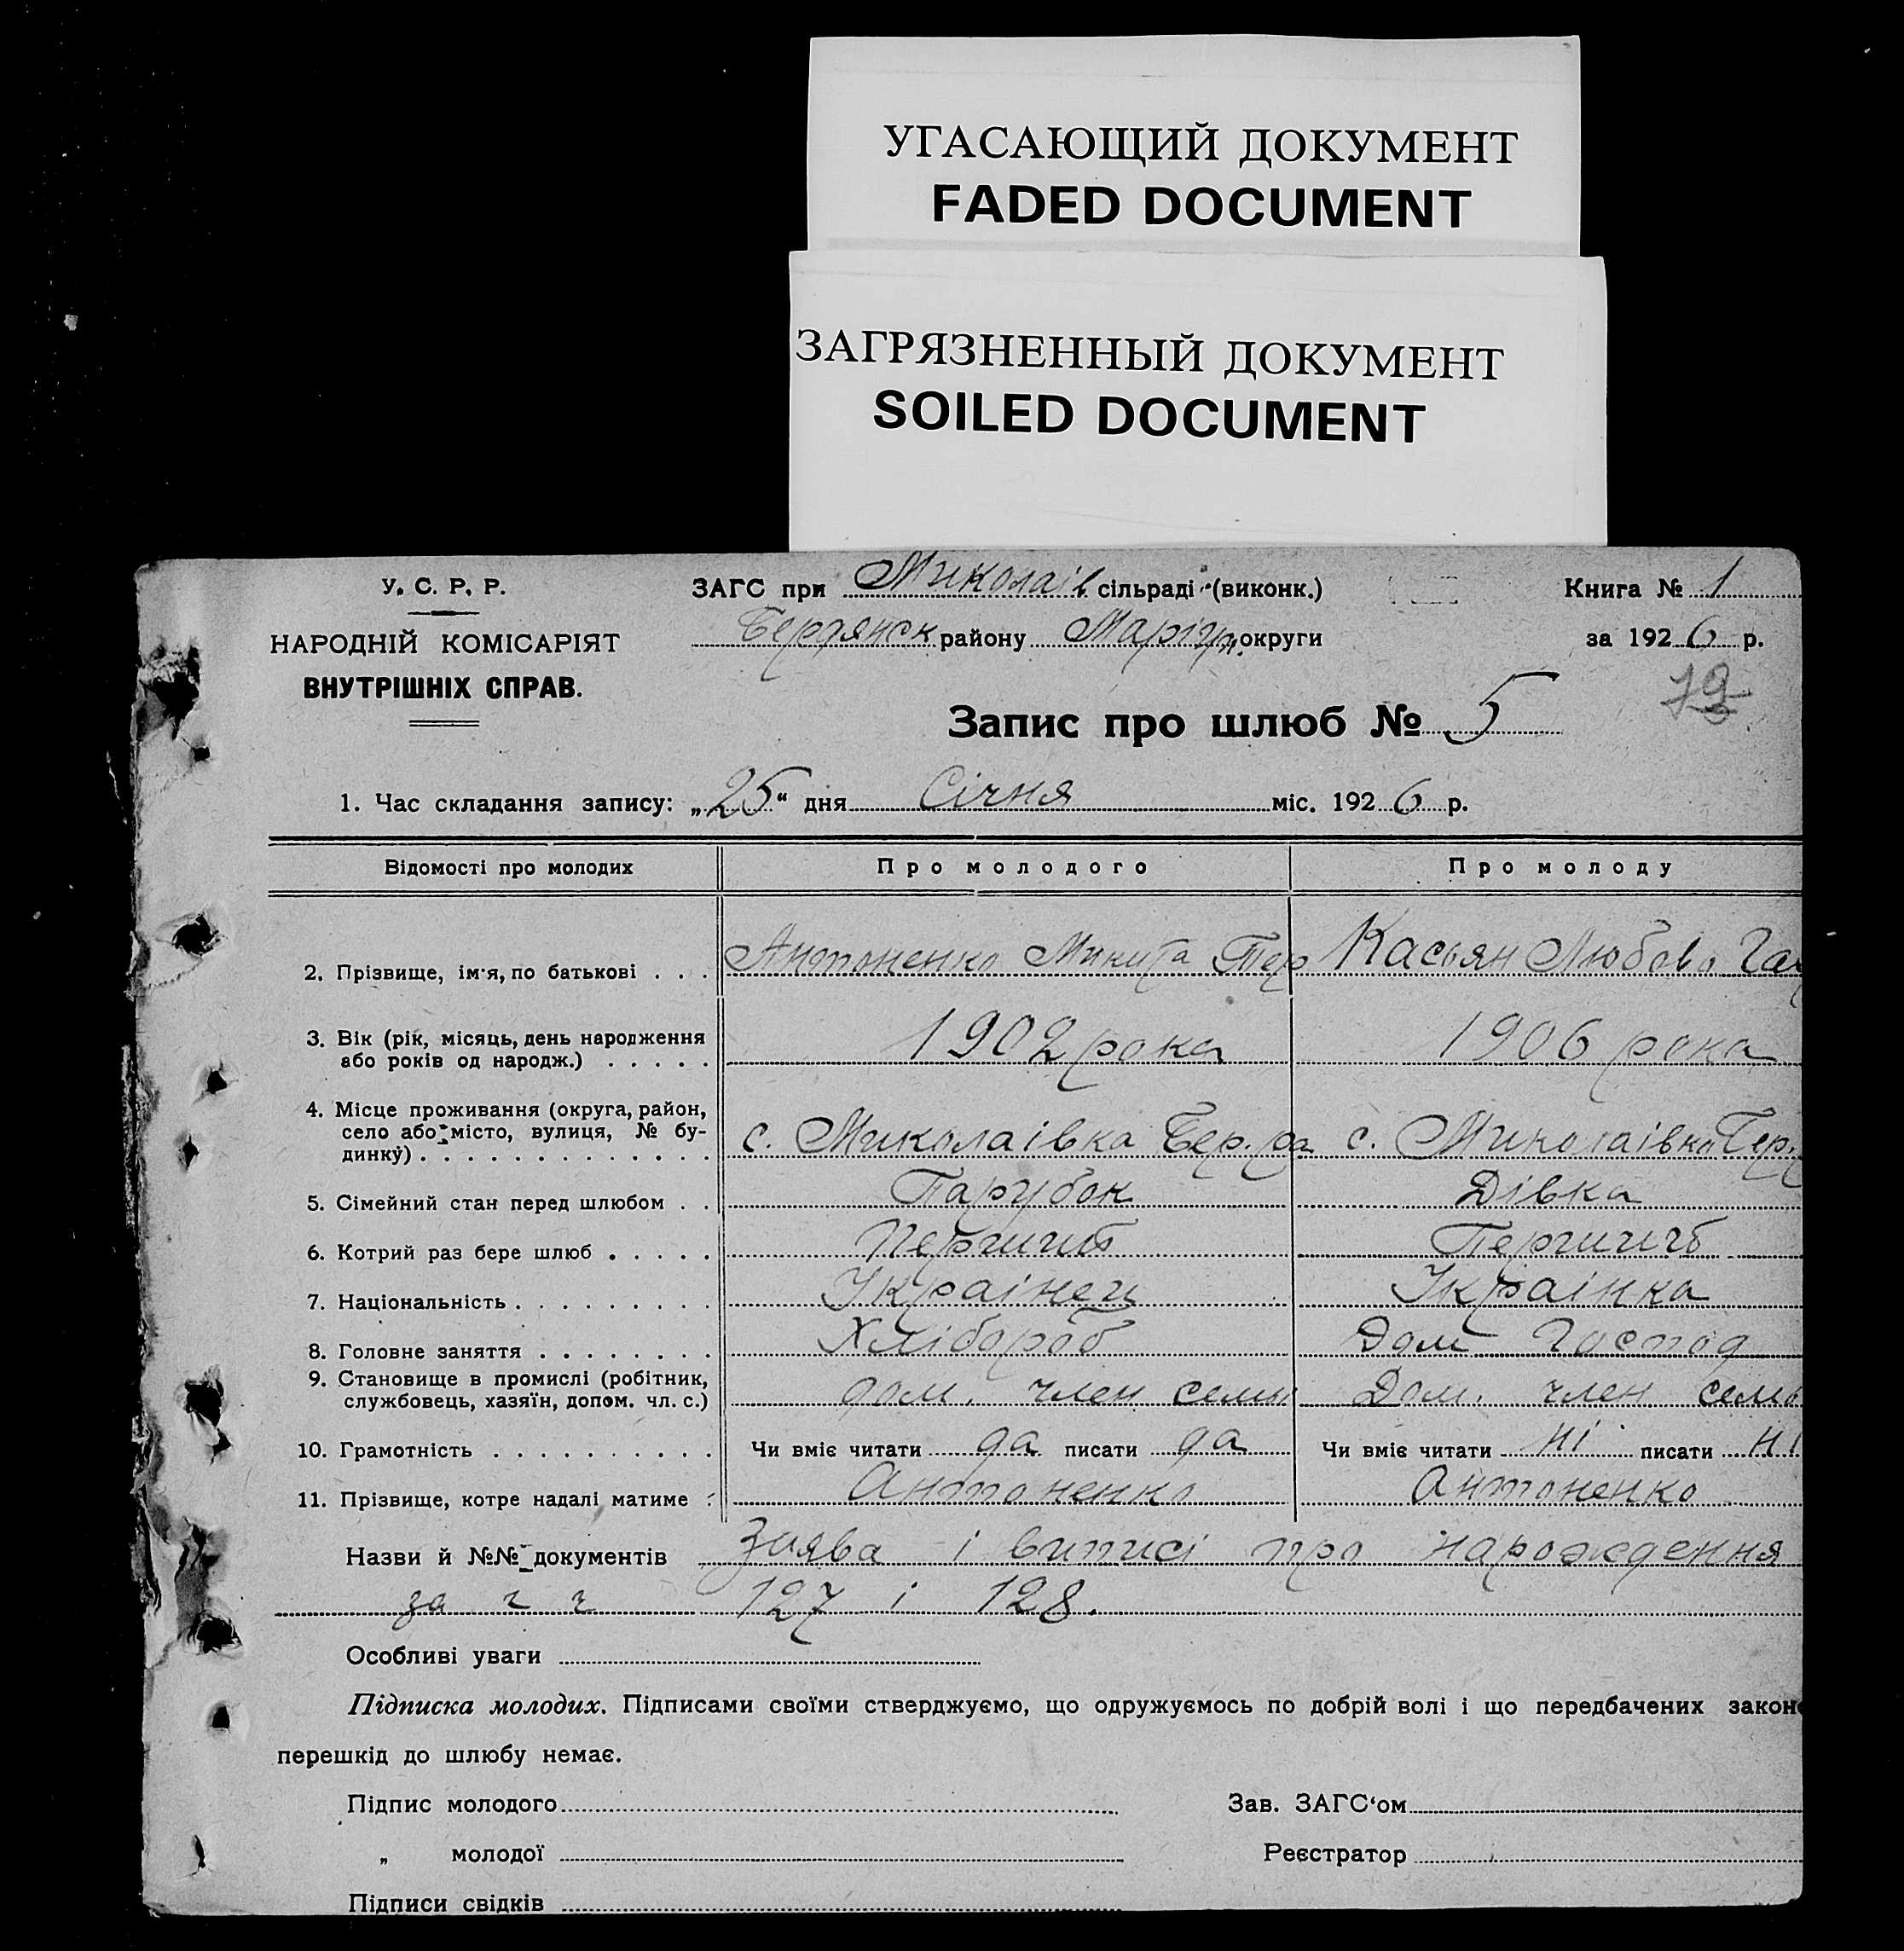 УГАСАЮЩИЙ ДОКУМЕНТ
FADED DOCUMENT
ЗАГРЯЗНЕННЫЙ ДОКУМЕНТ
SOILED DOCUMENT
У. С. Р. Р.
НАРОДНІЙ КОМІСАРІЯТ
ВНУТРІШНІХ СПРАВ.
ЗАГС при Миколаїв сільраді (виконк.)
Бердянск району Маріуп. округи
Книга № 1
за 1926 р.
Запис про шлюб № 5
1. Час складання запису: „25“ дня Січня міс. 1926 р.
Відомості про молодих Про молодого Про молоду
2. Прізвище, ім'я, по батькові . . . Антоненко Микита Касьян Любовь
3. Вік (рік, місяць, день народження
або років од народж.) . . . . . 1902 рока 1906 рока
4. Місце проживання (округа, район,
село або місто, вулиця, № бу-
динку) . . . . . . . . . . . . . с. Миколаівка Бер. ра с. Миколаівка Бер.
5. Сімейний стан перед шлюбом . . Парубок Дівка
6. Котрий раз бере шлюб . . . . . Перший Перший
7. Національність . . . . . . . . . Украінец Украінка
8. Головне заняття . . . . . . . . Хлібороб Дом Господ
9. Становище в промислі (робітник,
службовець, хазяїн, допом. чл. с.) дом. член семьи Дом. член семь
10. Грамотність . . . . . . . . . . Чи вміє читати да писати да Чи вміє читати ні писати ні
11. Прізвище, котре надалі матиме : Антоненко Антоненко
Назви й №№ документів Заява і виписі про народження
за г г 127 і 128.
Особливі уваги
Підписка молодих. Підписами своїми стверджуємо, що одружуємось по добрій волі і що передбачених законо
перешкід до шлюбу немає.
Підпис молодого Зав. ЗАГС'ом
„ молодої Реєстратор
Підписи свідків